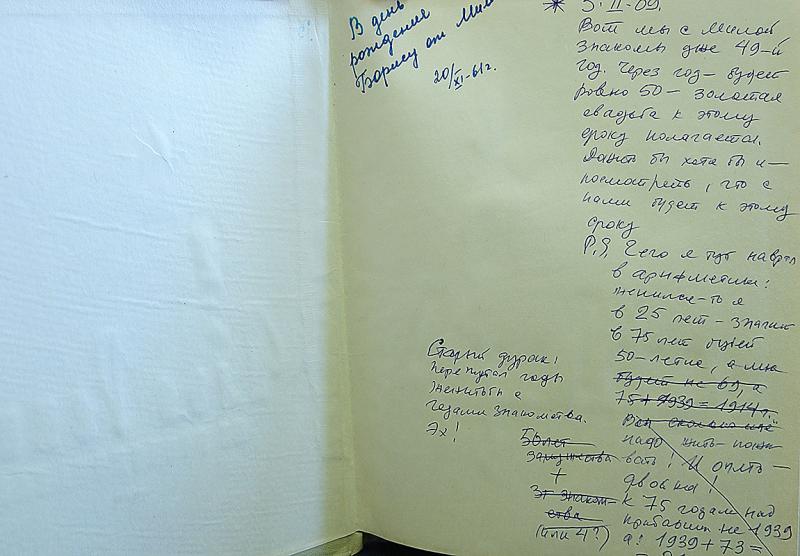 В день
рождения
Борису от Милы
20/XI-61г.
* 3.II-09.
Вот мы с Милой
знакомы уже 49-й
год. Через год – будет
ровно 50 – золотая
свадьба к этому
сроку полагается.
бы хотя бы
посмотреть, что с
нами будет к этому
сроку
P.S. Чего я тут наврал
в арифметике:
женился-то я
в 25 лет – значит
в 75 лет будет
50-летие, а мне
будет не 69, а
75 + 1939 = 1914 г.
Вот сколько ещё
надо жить-пожи
вать! И опять –
двойка!
К 75 годам над
прибавить не 1939
а! 1939 + 73 =
Старый дурак!
перепутал годы
женитьбы с
годами знакомства.
Эх!
50 лет
замужества
+
знаком
ства
(или 4?)